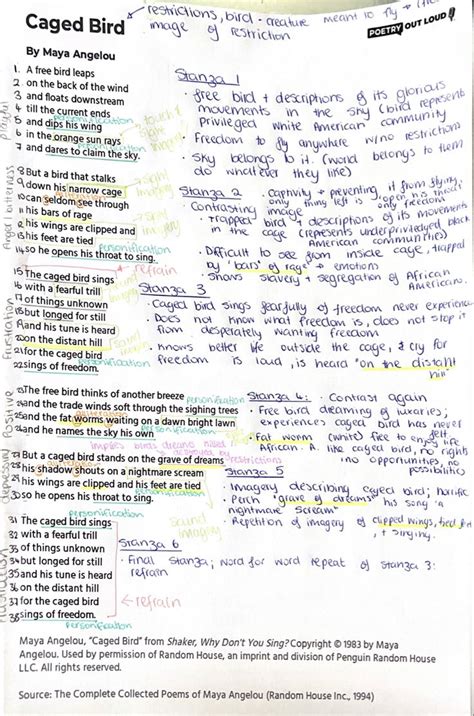 Caged Bird
restrictions, bird - creature meant to fly
image of restriction
POETRY OUT LOUD
By Maya Angelou
1. A free bird leaps
2 on the back of the wind
3 and floats downstream
4 till the current ends
personification
5 and dips his wing
6 in the orange sun rays
7 and dares to claim the sky.
personification
Playful
touch &
sight
imagery
Stanza 1
• free bird + descriptions of its glorious
movements in the sky (bird represent
privileged white American community
• Freedom to fly anywhere w/no restrictions
• Sky belongs to it. (world belongs to them
do whatever they like)
8 But a bird that stalks
9 down his narrow cage
10 can seldom see through
11 his bars of rage
12 his wings are clipped and
13 his feet are tied
14 so he opens his throat to sing.
alliteration
sight
imagery
personification
Anger/bitterness
Stanza 2
• captivity + preventing it from flying,
only thing left is open his throat
• Contrasting image
• trapped bird + descriptions of its movements
in the cage (represents underprivileged black
American communities)
• Difficult to see from inside cage, trapped
by "bars of rage" + emotions
• Shows slavery + segregation of African
Americans.
refrain
15 The caged bird sings
16 with a fearful trill
17 of things unknown
18 but longed for still
19 and his tune is heard
20 on the distant hill
21 for the caged bird
22 sings of freedom.
sound
imagery
personification
Frustration
Stanza 3
• Caged bird sings fearfully of freedom never experienced
• Does not know what freedom is, does not stop it
from desperately wanting freedom
• knows better life outside the cage, & cry for
freedom is loud, is heard "on the distant
hill"
23 The free bird thinks of another breeze
personification
24 and the trade winds soft through the sighing trees
alliteration
25 and the fat worms waiting on a dawn bright lawn
26 and he names the sky his own
personification
Positive
Stanza 4: • Contrast again
• Free bird dreaming of luxuries;
experiences caged bird has never
felt
• Fat worm (white) free to enjoy life
African. A. like caged bird, no rights
no opportunities, no
possibilities
implies birds dreams killed
by restrictions
27 But a caged bird stands on the grave of dreams
alliteration
28 his shadow shouts on a nightmare scream
29 his wings are clipped and his feet are tied
30 so he opens his throat to sing.
personification
depressing
Stanza 5
• Imagery describing caged bird; horrific
• Perch "grave of dreams" his song "a
nightmare scream"
• Repetition of imagery of clipped wings, tied feet,
+ singing.
31 The caged bird sings
32 with a fearful trill
33 of things unknown
34 but longed for still
35 and his tune is heard
36 on the distant hill
37 for the caged bird
38 sings of freedom.
sound
imagery
← refrain
personification
Frustration
Stanza 6
• Final Stanza; word for word repeat of stanza 3:
refrain
Maya Angelou, "Caged Bird" from Shaker, Why Don't You Sing? Copyright © 1983 by Maya
Angelou. Used by permission of Random House, an imprint and division of Penguin Random House
LLC. All rights reserved.
Source: The Complete Collected Poems of Maya Angelou (Random House Inc., 1994)